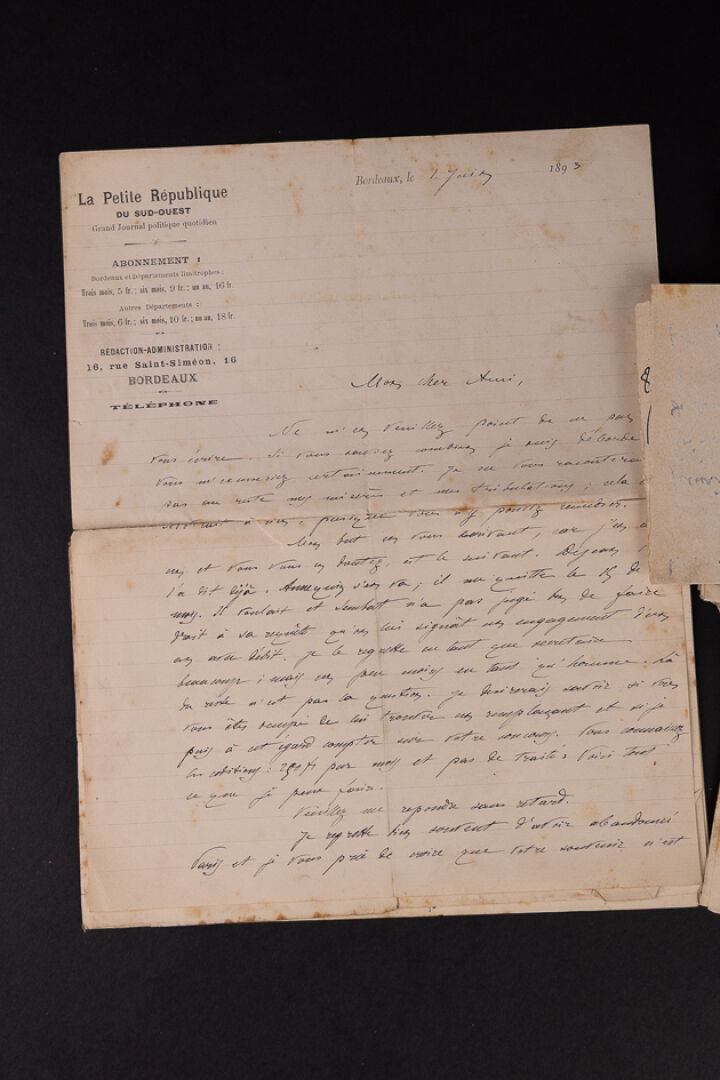 La Petite République
DU SUD-OUEST
Grand Journal politique quotidien
ABONNEMENT :
Bordeaux et Départements limitrophes :
Trois mois, 5 fr. ; six mois, 9 fr. ; un an, 16 fr.
Autres Départements :
Trois mois, 6 fr. ; six mois, 10 fr. ; un an, 18 fr.
RÉDACTION-ADMINISTRATION :
16, rue Saint-Siméon, 16
BORDEAUX
TÉLÉPHONE
Bordeaux, le 2 Juin 1893
Mon cher Ami,
Ne m'en veuillez point de ne pas
vous écrire. Si vous saviez combien je suis débordé
vous m'excuseriez certainement. Je ne vous raconterai
pas au reste mes misères et mes tribulations ; cela
à rien, puisque vous n'y pouvez remédier.
Mon but en vous écrivant, car j'en ai
un et vous vous en doutez, est le suivant. Dejean
l'a dit déjà. s'en va ; il me quitte le 15 de
mois. Il voulait et Sembat n'a pas jugé bon de faire
droit à sa requête qu'on lui signât un engagement d'un
an avec dédit. Je le regrette en tant que secrétaire
beaucoup ; mais un peu moins en tant qu'homme. Là
du reste n'est pas la question. Je désirerais savoir si vous
vous êtes occupé de lui trouver un remplaçant et si je
puis à cet égard compter sur votre concours. Vous connaissez
les conditions : par mois et pas de traité. Voici tout
ce que je peux faire.
Veuillez me répondre sans retard.
Je regrette bien souvent d'avoir abandonné
Paris et je vous prie de croire que votre souvenir n'est